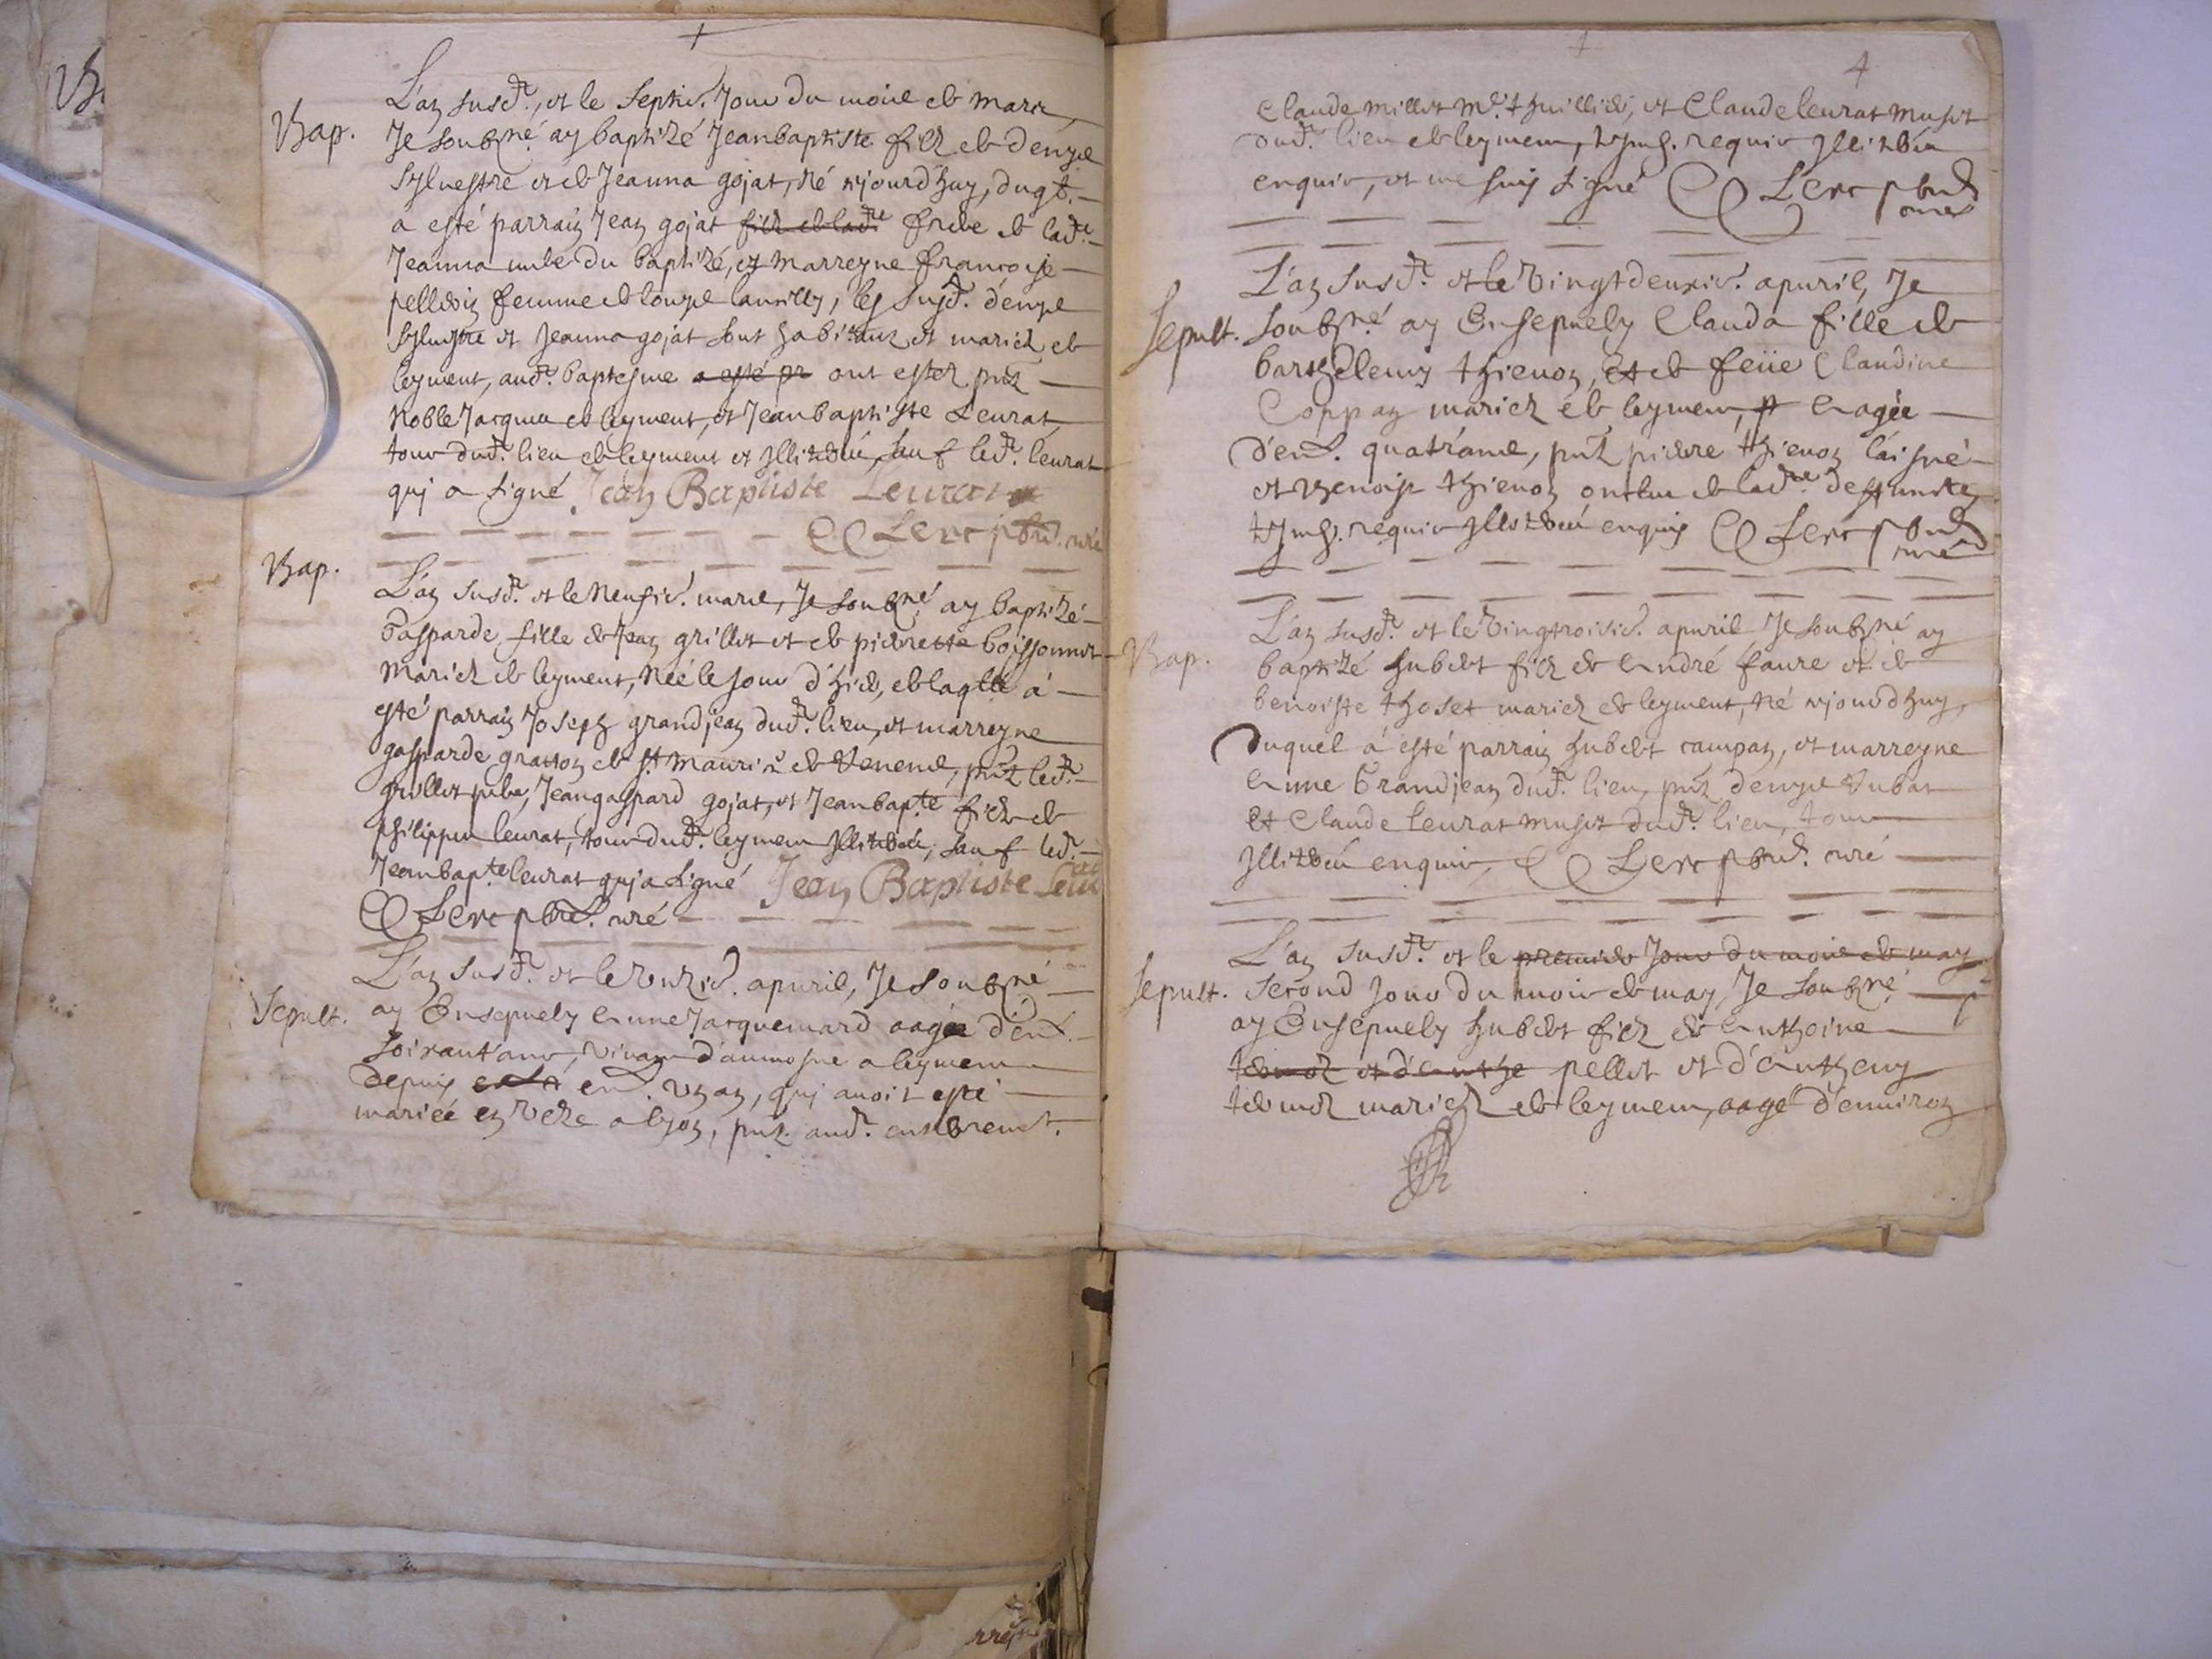 L'an susd.t, et le septie. Jour du mois de Mars
Bap.
Je soubzné ay baptizé Jeanbaptiste filz de denyse
Syluestre et de Jeanna gojat, né ujourd'huy, duql.
a esté parrain Jean gojat filz de lad.te frere de lad.te
Jeanna mere du baptizé, et marreyne francoise
femme de lad. susd.t denyse
Syluestre et Jeanna gojat sont habitans et mariez de
leyment, aud.t baptesme a esté pr ont estez pnz
Noble Jacques de leyment, et Jeanbaptiste Leurat
tous dud.t lieu de leyment et illiterez, sauf led.t leurat
qui a signé Jean Baptiste Leurat
Lerc pbre. curé
Bap.
L'an susd.t et le neufie. mars, Je soubzné ay baptizé
Gasparde fille de Jean grillet et de pierrette boissonnet
Mariez de leyment, née le jour d'hier, de laqlle a
esté parrain Joseph grandjean dud.t lieu, et marreyne
gasparde gratton de St Mauris de Remens, pnz led.t
grillet pere, Jeangaspard gojat, et Jeanbap.te filz de
philippe leurat, tous dud.t leymen illiterez, sauf led.t
Jeanbap.te leurat qui a signé Jean Baptiste Leurat
Lerc pbre. curé
L'an susd.t et le unzie. apuril, Je soubzné
Sepult.
ay Ensepuely Anne Jacquemard aagée d'en.
soixant'ans, viuant d'aumosne a leymen
depuis en. un an, qui auoit esté
mariée en a lyon, pnz. aud.t enterremt.
4
Claude millet M.e thuillier, et Claude leurat muset
dud.t lieu de leymen, tesmg. requis illiterez
enquis, et me suis signé Lerc pbre
curé
L'an susd.t et le vingtdeuxie. apuril, Je
Sepult.
soubzné ay Ensepuely Clauda fille de
barthelemy thienon, et de feüe Claudine
Coppan mariez de leymen, p aagée
d'en. quatr'ans, pnz pierre thienon l'aisné
et Benoist thienon oncles de lad.te deffuncte
tesmg. requis illiterez enquis Lerc pbre
curé
L'an susd.t et le vingtroisie. apuril Je soubzné ay
Bap.
baptizé hubert filz de André faure et de
benoiste thoset mariez de leyment, né ujourd'huy,
duquel a esté parrain hubert campan, et marreyne
Anne Grandjean dud.t lieu, pnz denyse Jubat
et Claude Leurat muset dud.t lieu, tous
illiterez enquis, Lerc pbre. curé
L'an susd.t et le premier Jour du mois de may
Sepult.
second jour du mois de may, Je soubzné
ay Ensepuely hubert filz de Anthoine
termoz et d'anthe pellet et d'Antheny
termoz mariez de leymen, aagé d'enuiron